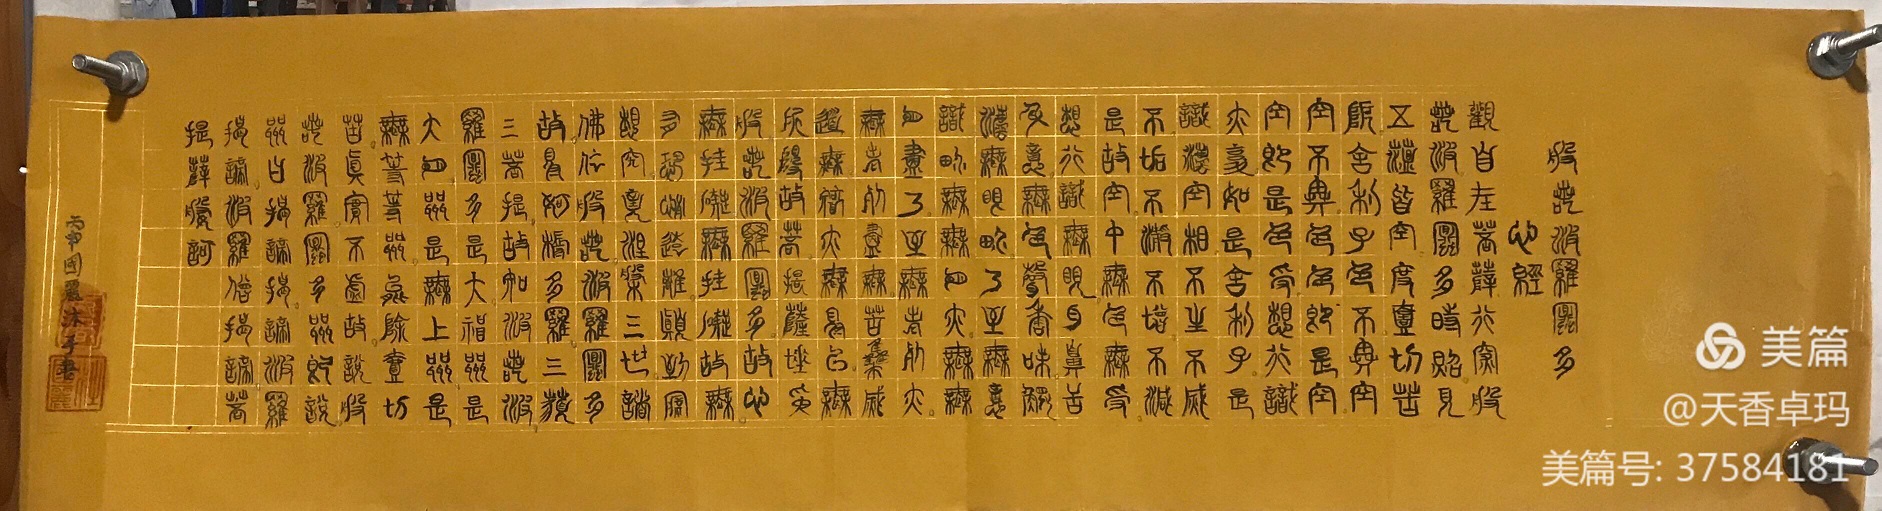 般若波羅蜜多
心經
觀自在菩薩行深般
若波羅蜜多時照見
五蘊皆空度壹切苦
厄舍利子色不異空
空不異色色即是空
空即是色受想行識
亦復如是舍利子是
諸法空相不生不滅
不垢不淨不增不減
是故空中無色無受
想行識無眼耳鼻舌
身意無色聲香味觸
法無眼界乃至無意
識界無無明亦無無
明盡乃至無老死亦
無老死盡無苦集滅
道無智亦無得以無
所得故菩提薩埵依
般若波羅蜜多故心
無罣礙無罣礙故無
有恐怖遠離顛倒夢
想究竟涅槃三世諸
佛依般若波羅蜜多
故得阿耨多羅三藐
三菩提故知般若波
羅蜜多是大神咒是
大明咒是無上咒是
無等等咒能除壹切
苦真實不虛故說般
若波羅蜜多咒即說
咒曰揭諦揭諦波羅
揭諦波羅僧揭諦菩
提薩婆訶
丙申國麗沐手書
美篇
@天香卓玛
美篇号: 37584181